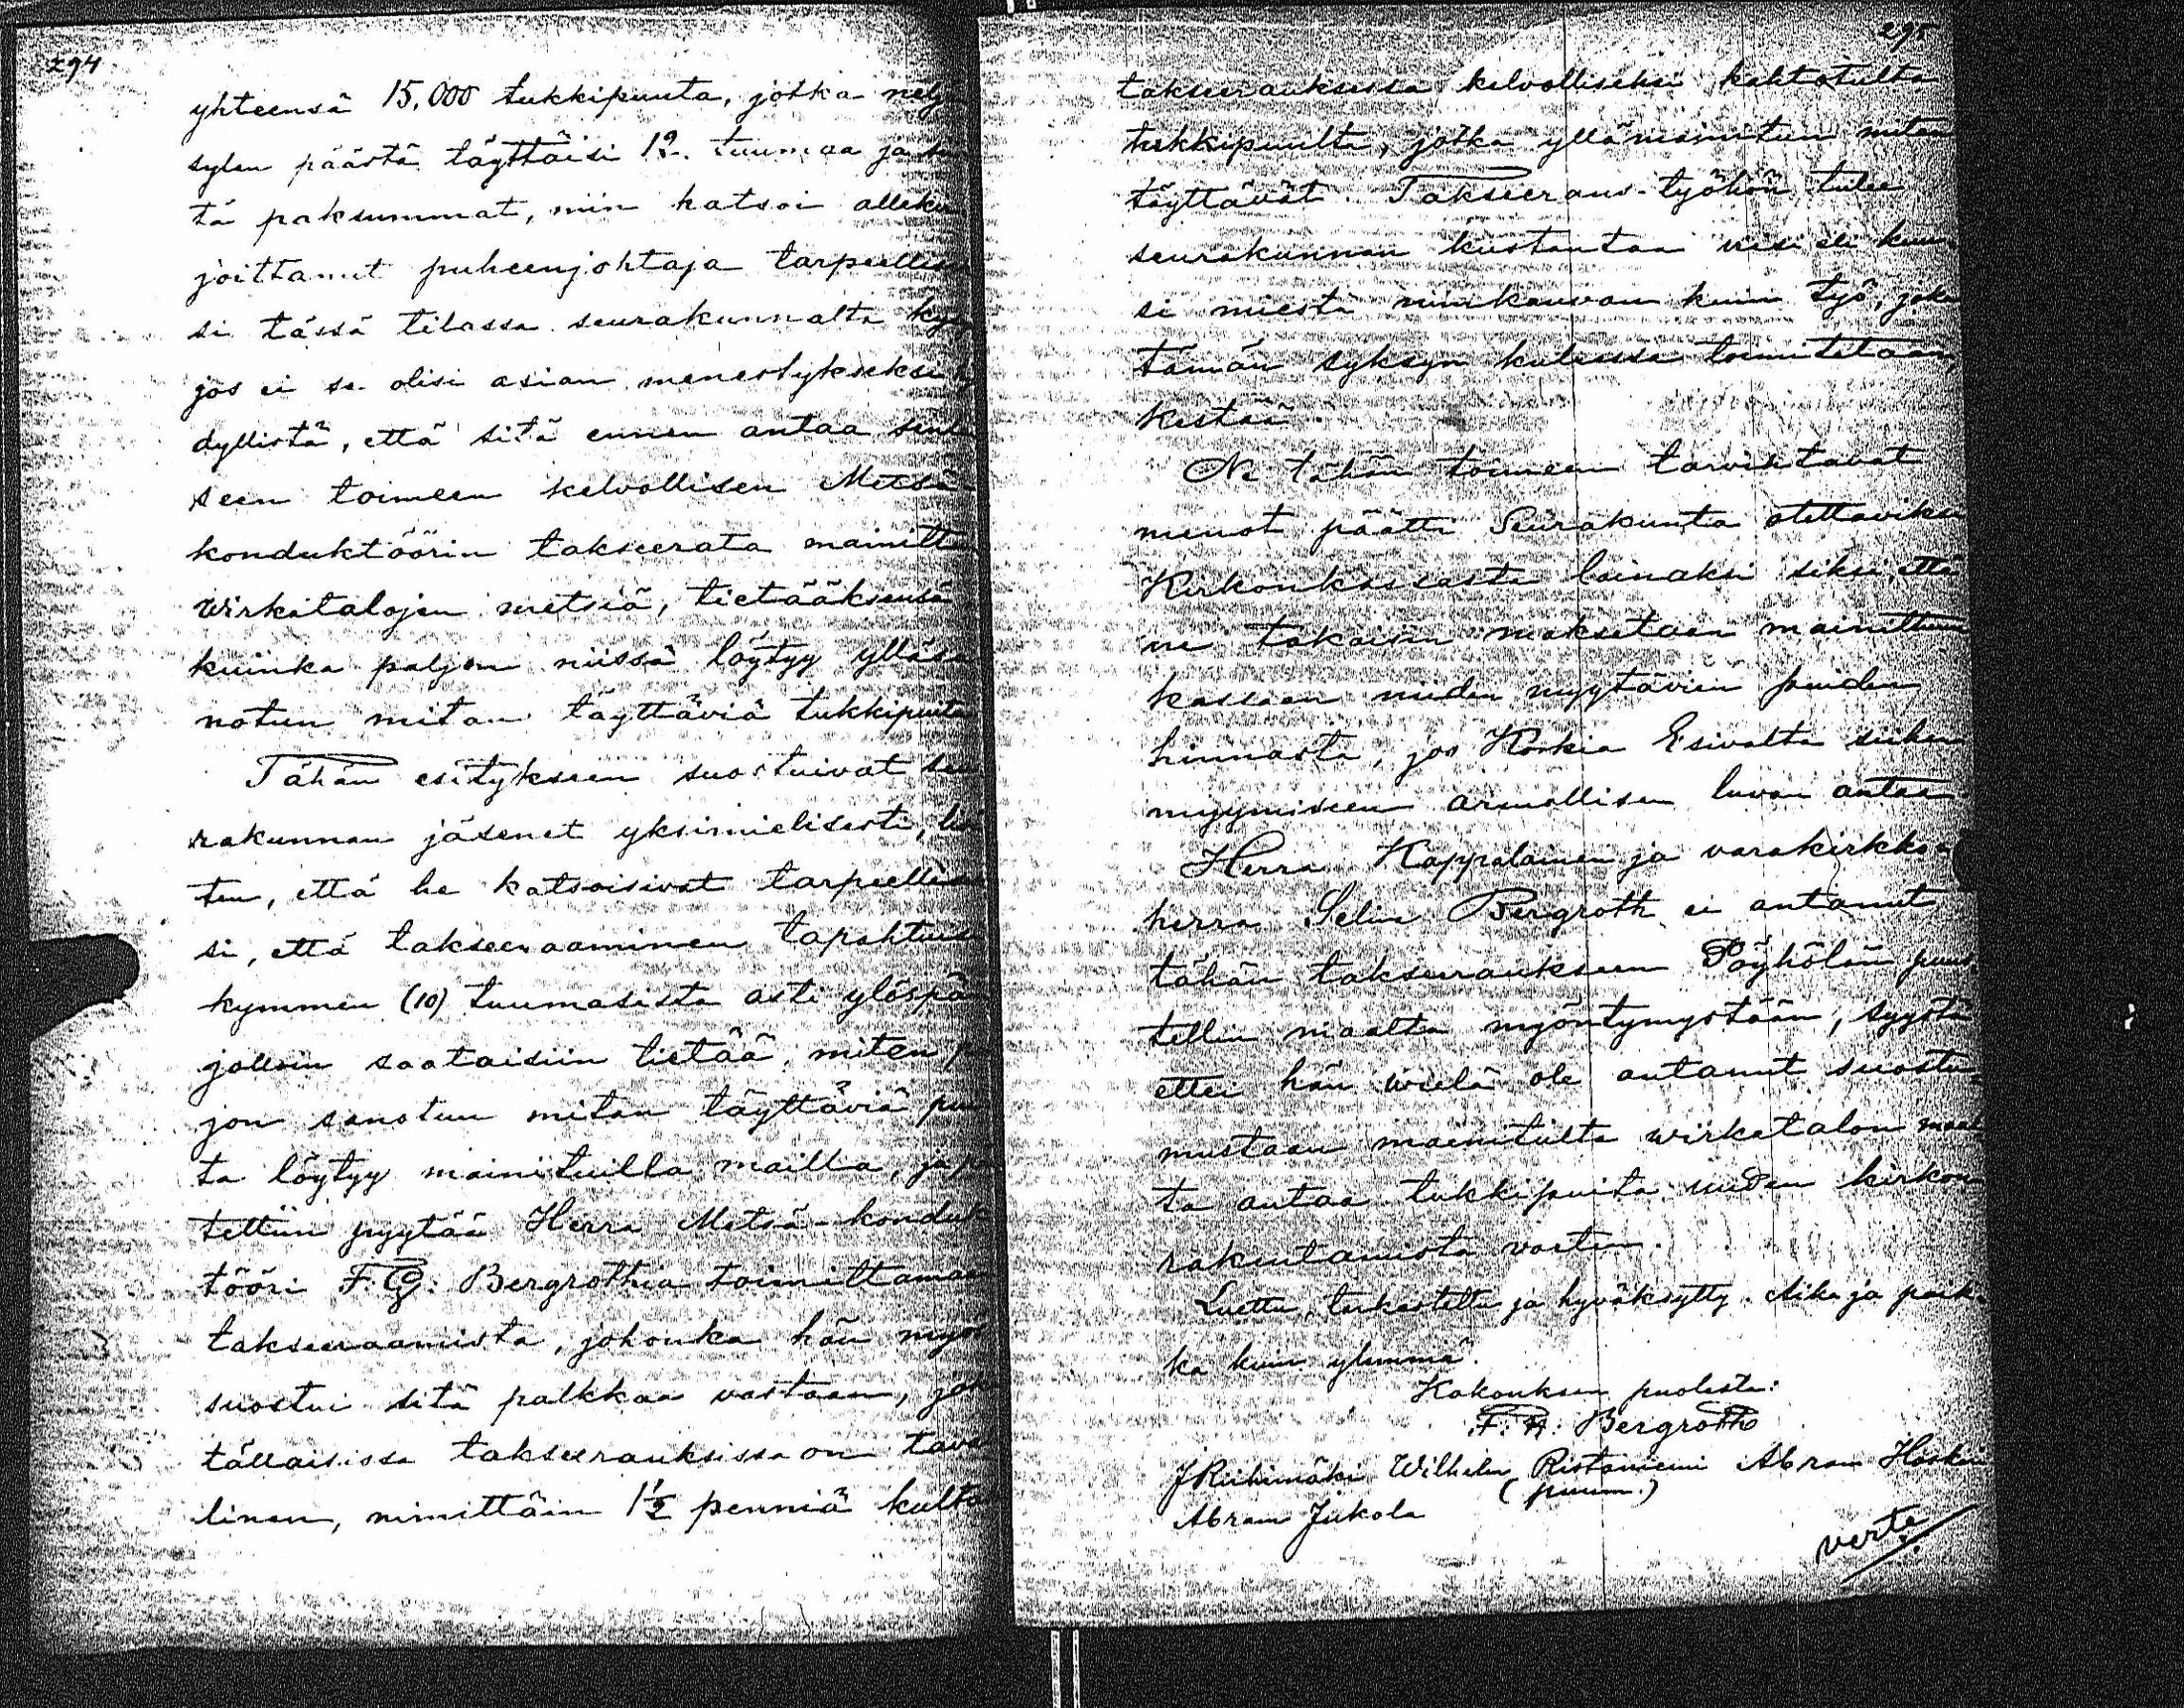 294
yhteensä 15,000 tukkipuuta, jotka nelj
sylen päästä täyttäisi 12. tuumaa ja
tä paksummat, niin katsoi alleki
joittanut puheenjohtaja tarpeellise
si tässä tilassa seurakunnalta ky
jos ei se olisi asian menestykseksi
dyllistä, että sitä ennen antaa
seen toimeen kelvollisen Metsä
konduktöörin takseerata mainittu
Wirkatalojen metsiä, tietääksensä
kuinka paljon niissä löytyy ylläsa
notun mitan täyttäviä tukkipuita
Tähän esitykseen suostuivat seu
rakunnan jäsenet yksimielisesti, li
ten, että he katsoisivat tarpeellise
si, että takseeraaminen tapahtuis
kymmen (10) tuumasista asti ylöspä
jolloin saataisiin tietää, miten p
jon sanotun mitan täyttäviä pu
ta löytyy mainituilla mailla, ja p
tettiin pyytää Herra Metsä-konduk
tööri F. G: Bergrothia toimittamaa
takseeraamista, johonka hän myös
suostui sitä palkkaa vastaan, jok
tällaisissa takseerauksissa on tava
linen, nimittäin 1 1/2 penniä kulta
295
takseerauksessa kelvolliseksi kahtotulta
tukkipuulta, jotka yllämainitun mitan
täyttävät. Takseeraus-työhön tulee
seurakunnan kustantaa viisi eli kuu
si miestä niinkauvan kuin työ, joka
tämän syksyn kuluessa toimitetaan,
kestää.
Ne tähän toimeen tarvittavat
menot päätti Seurakunta otettaviksi
Kirkonkassasta lainaksi siksi, että
ne takaisin maksetaan mainittuun
kassaan niiden myytävien puiden
hinnasta, jos Korkia Esivalta siihen
myymiseen armollisen luvan antaa.
Herra Kappalainen ja varakirkko-
herra Selim Bergroth ei antanut
tähän takseeraukseen Pöyhölän puus
tellin maalta myöntymystään, syystä
ettei hän wielä ole antanut suostu-
mustaan mainitulta wirkatalon maal
ta antaa tukkipuita uuden kirkon
rakentamista varten.
Luettu, tarkastettu ja hyväksytty. Aika ja paik-
ka kuin ylinnä.
Kokouksen puolesta:
F. H: Bergroth
J Riihimäki Wilhelm Ristaniemi Abram Hosk
(puum.)
Abram Jukola
verte